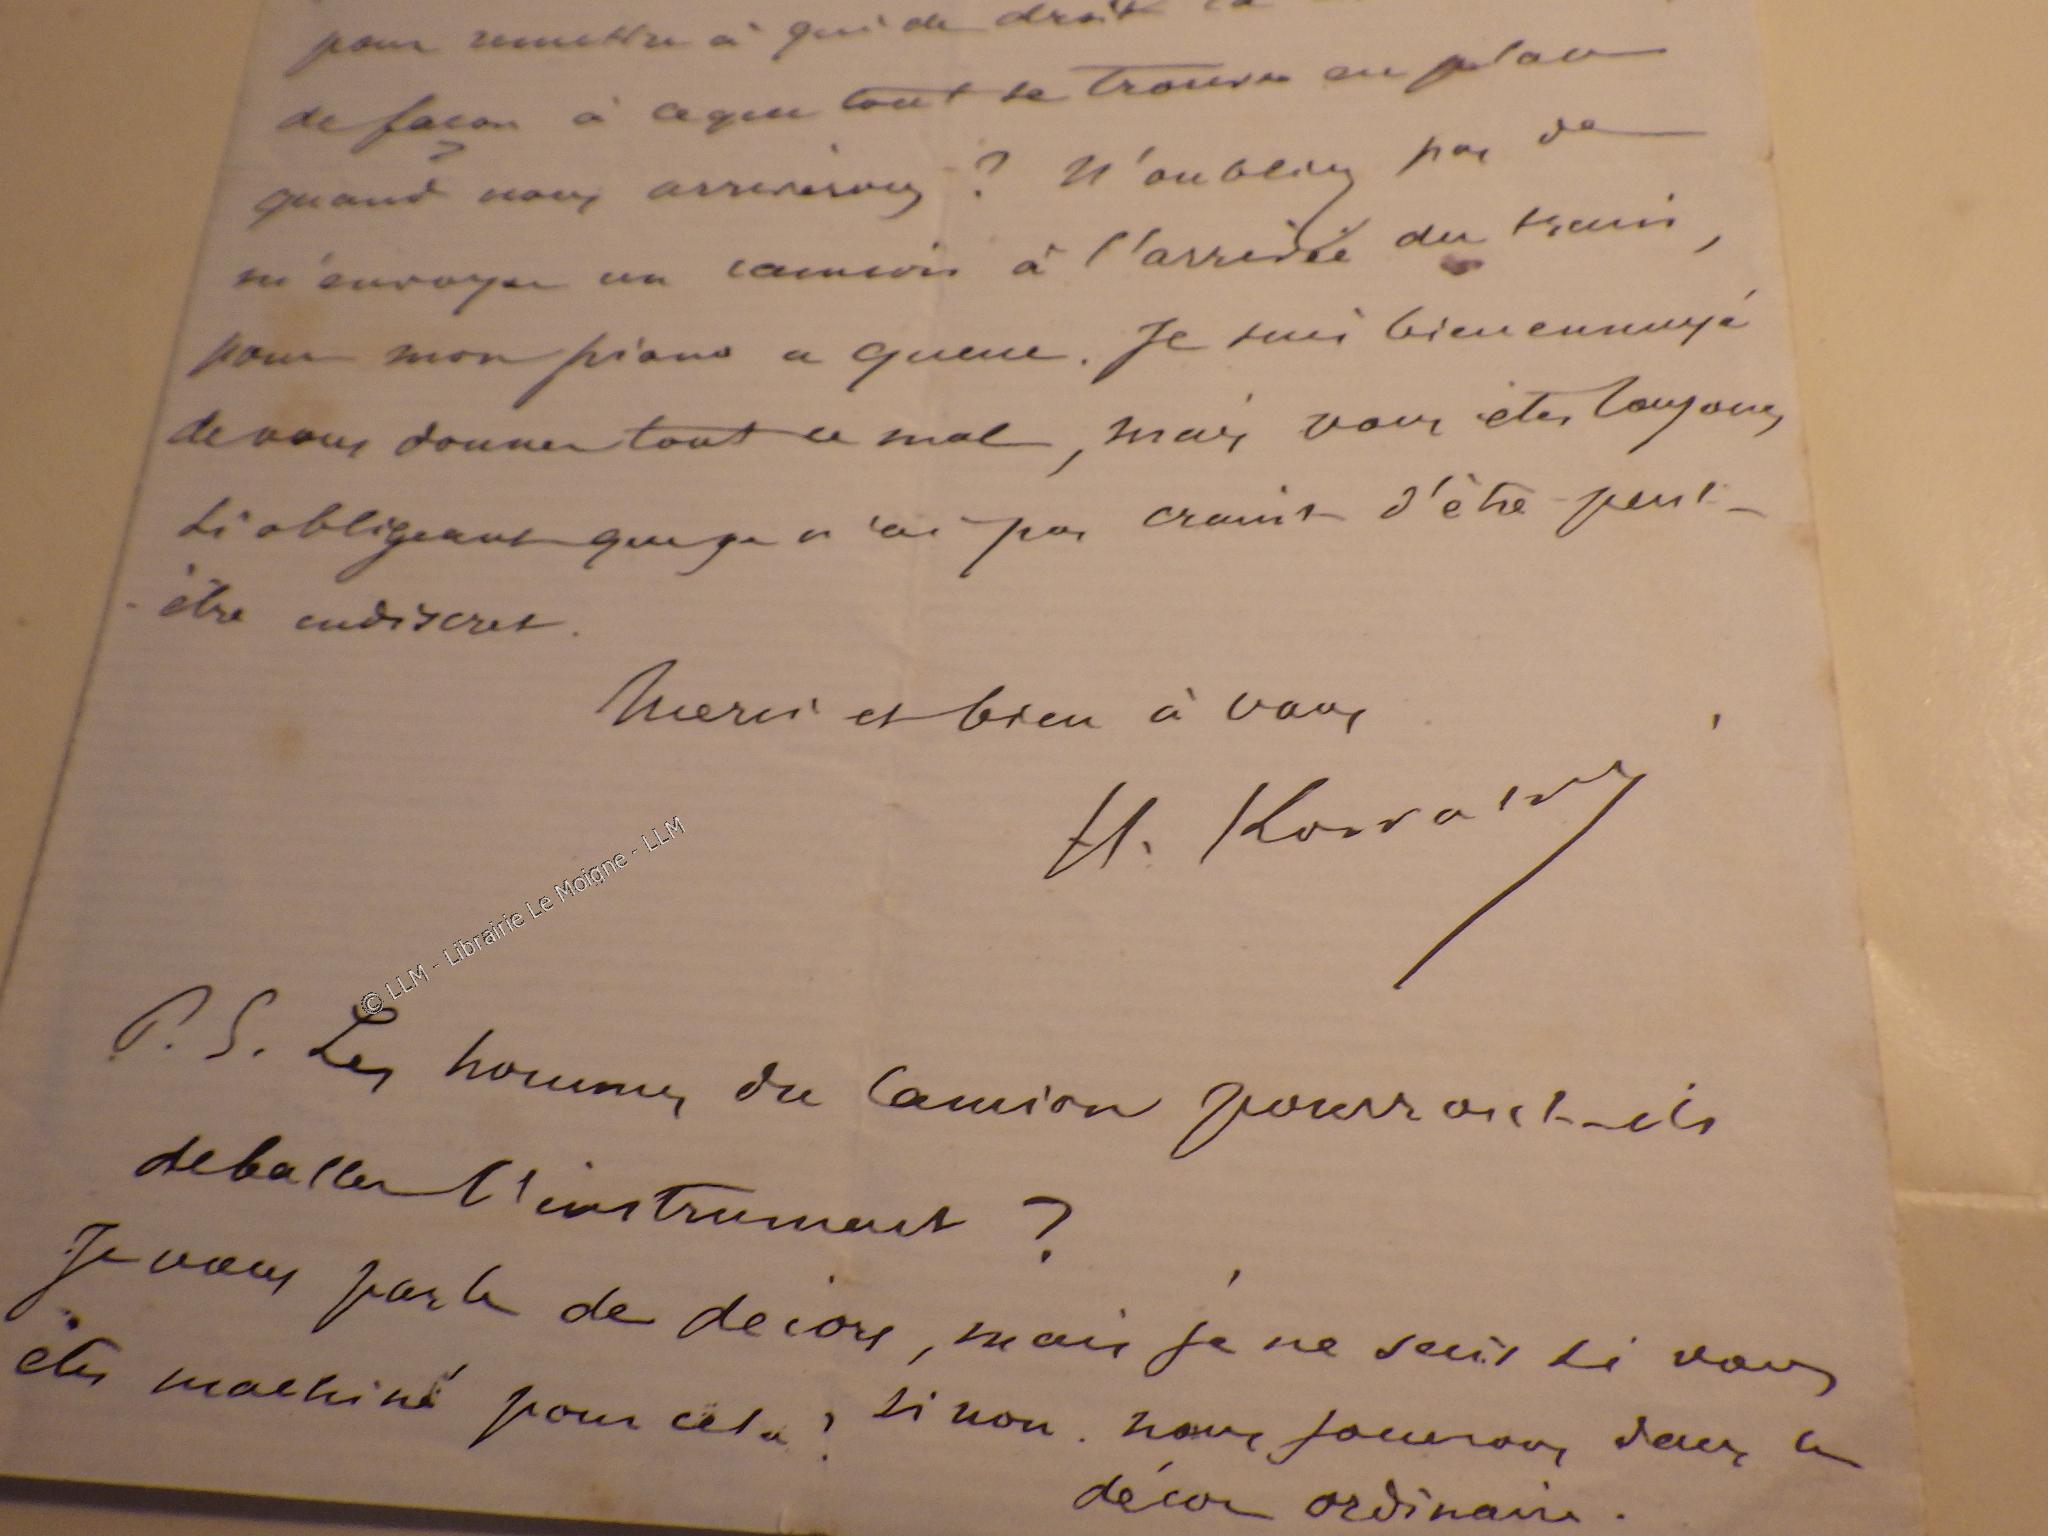 pour remettre à qui de droit
de façon à ce que tout se trouve en place
quand nous arriverons ? N'oubliez pas de
m'envoyer un camion à l'arrivée du train,
pour mon piano a queue. Je suis bien ennuyé
de vous donner tout ce mal, mais vous êtes toujours
si obligeant que je n'ai pas craint d'être peut-
-être indiscret.
Merci et bien à vous
H. Kowalski
© LLM - Librairie Le Moigne - LLM
P.S. Les hommes du camion pourront-ils
deballer l'instrument ?
Je vous parle de decors, mais je ne sais si vous
êtes machiné pour cela ? Si non. nous jouerons dans le
décor ordinaire.